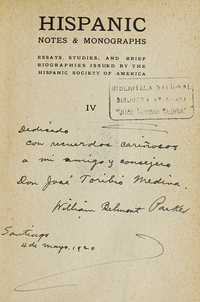 HISPANIC
NOTES & MONOGRAPHS
ESSAYS, STUDIES, AND BRIEF
BIOGRAPHIES ISSUED BY THE
HISPANIC SOCIETY OF AMERICA
BIBLIOTECA NACIONAL
BIBLIOTECA AMERICANA
"JOSE TORIBIO MEDINA"
IV
Dedicado
con recuerdos cariñosos
a mi amigo y consejero
Don José Toribio Medina.
William Belmont Parker
Santiago
4 de mayo, 1920